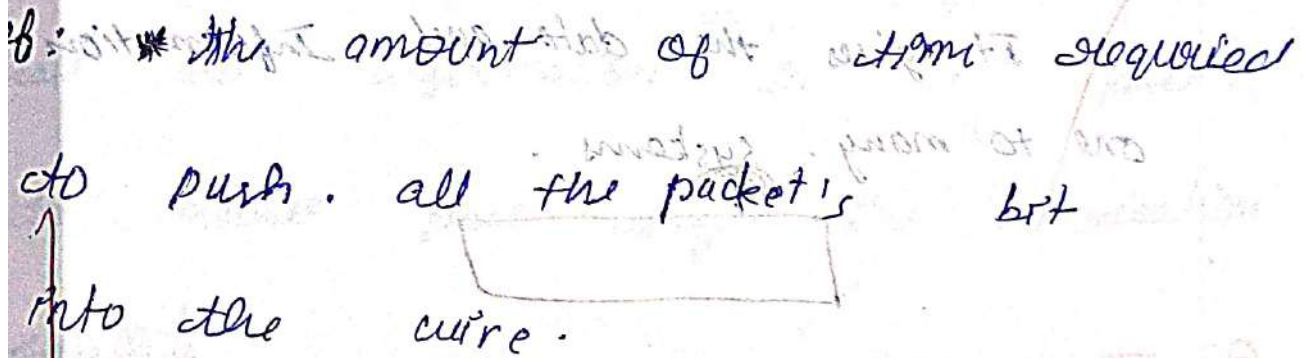 the amount of time required
to push. all the packet's bit
into the wire.